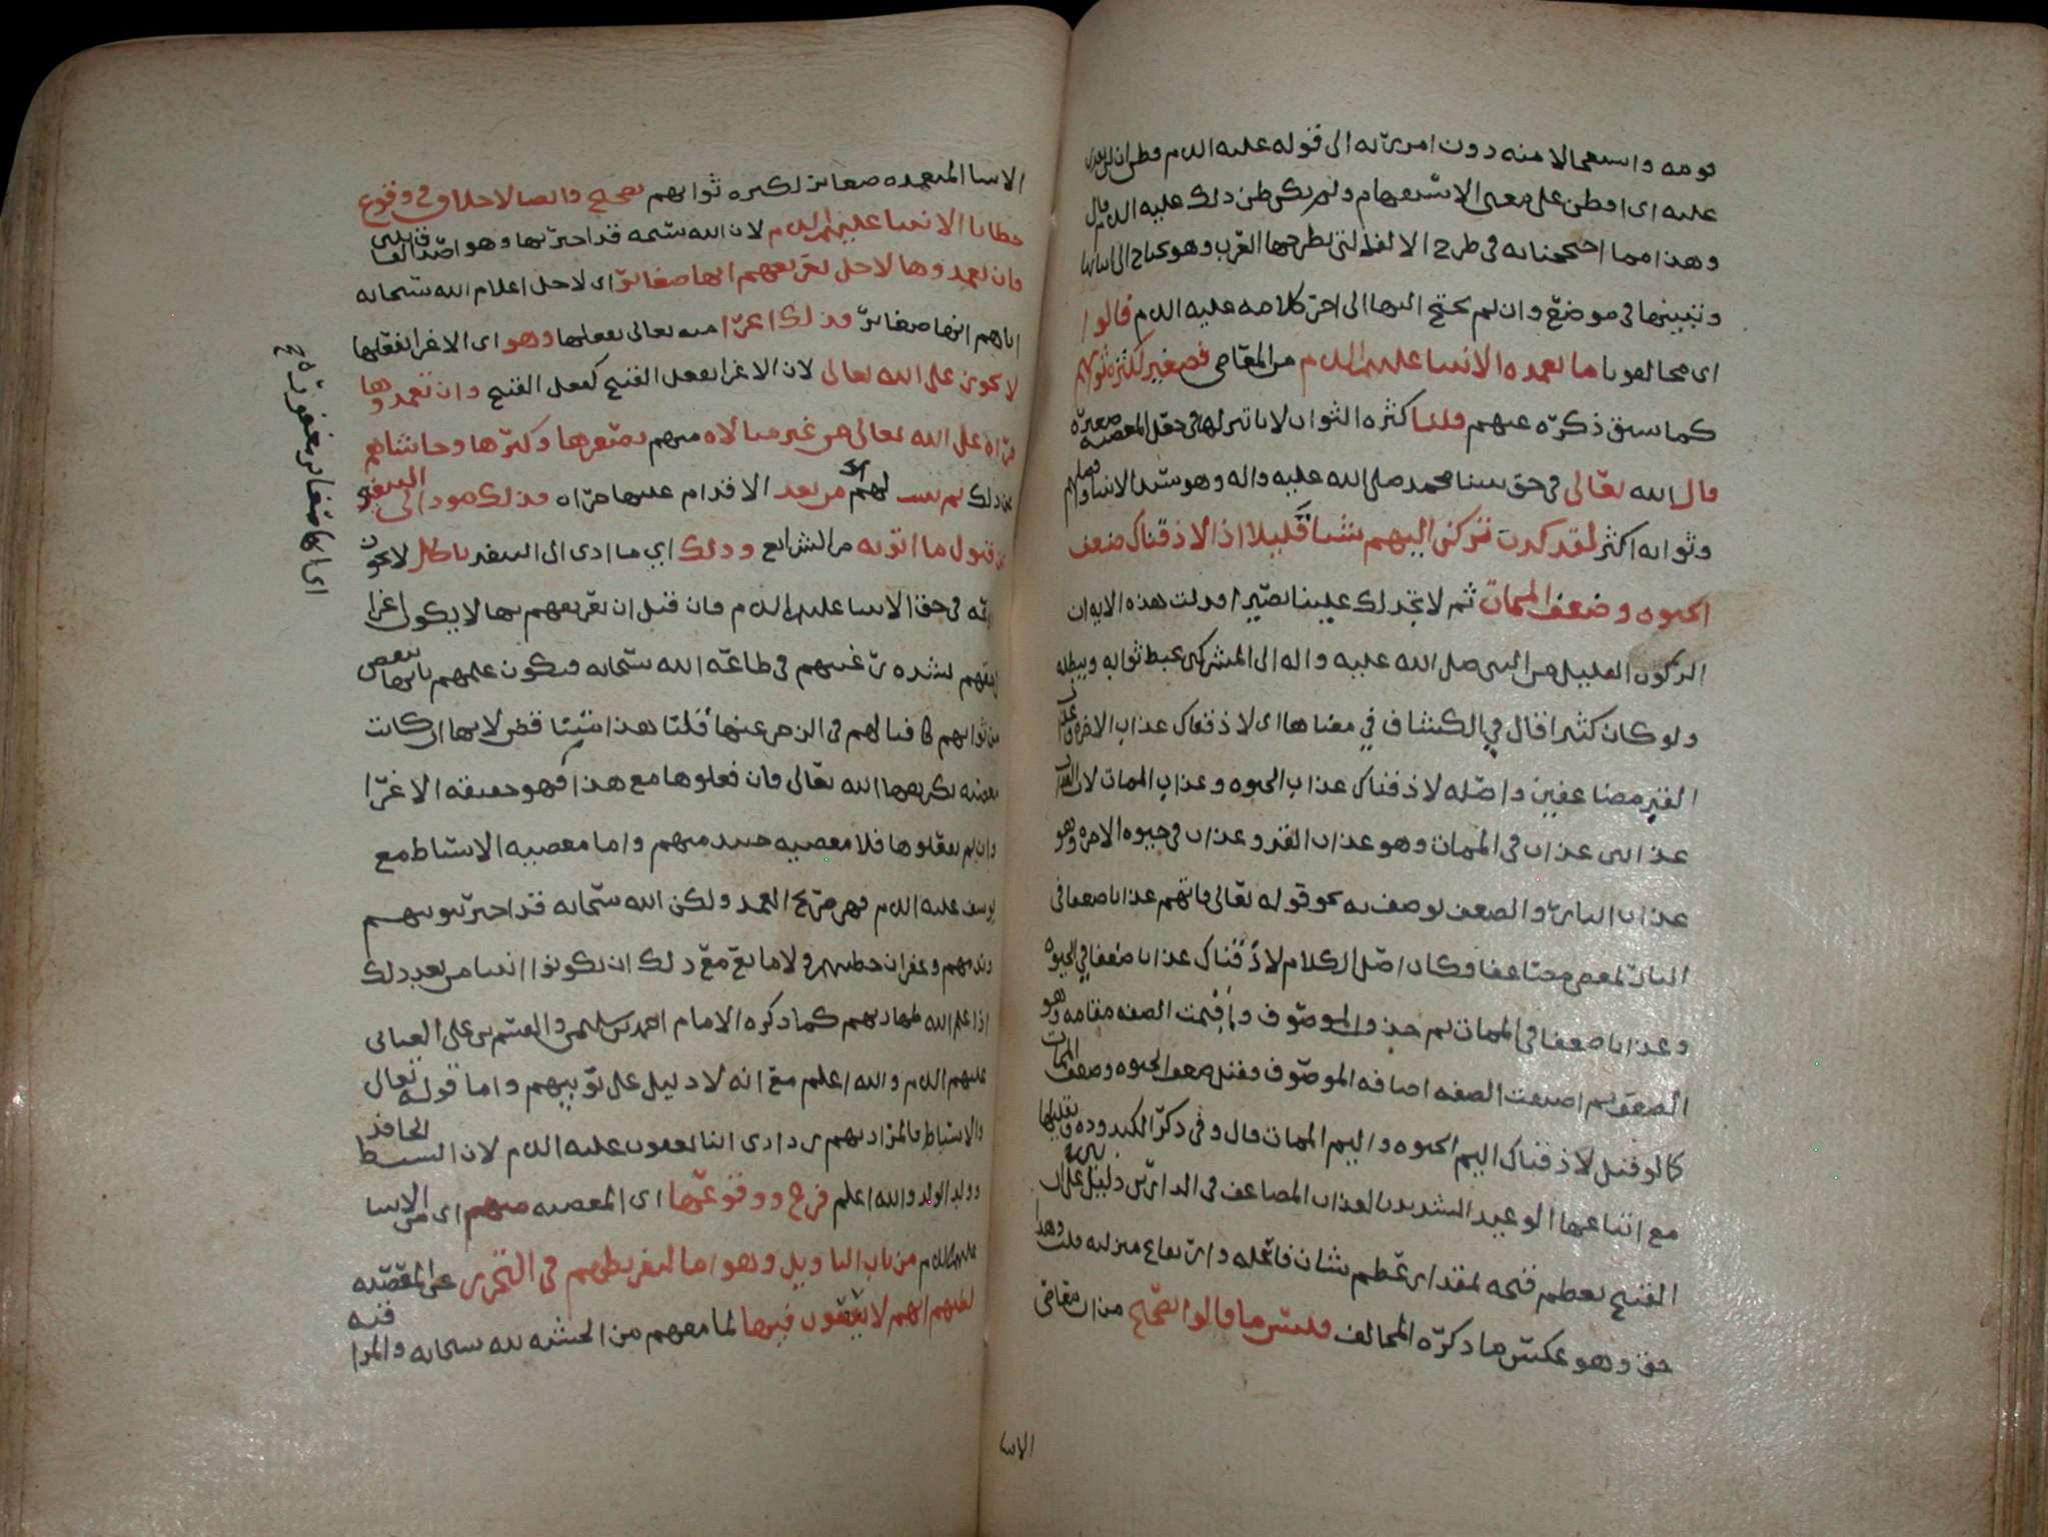 قومه واستعمالا منه دون امر ربه الى قوله عليه السلم فظن ان لن نقدر
عليه اى افظن على معنى الاستفهام ولم يكن ظن ذلك عليه السلم قال
وهذا مما احتججنا به فى طرح الالف التى تطرحها العرب وهو يحتاج الى اثباتها
وتثبتها فى موضع وان لم يحتج اليها الى اخر كلامه عليه السلم قالوا
اى مخالفونا ما تعمده الانبيا عليهم السلم من المعاصى فصغير لكثرة ثوابهم
كما سبق ذكره عنهم قلنا كثرة الثواب لا تاثير لها فى جعل المعصيه صغيره
قال الله تعالى فى حق نبينا محمد صلى الله عليه واله وهو سيد الانبيا وافضلهم
وثوابه اكثر لقد كدت تركن اليهم شيئا قليلا اذا لاذقناك ضعف
الحيوه وضعف الممات ثم لا تجد لك علينا نصيرا فدلت هذه الايه ان
الركون القليل من النبى صلى الله عليه واله الى المشركين يحبط ثوابه ويبطله
ولو كان كثيرا قال فى الكشاف فى معناها اى لاذقناك عذاب الاخره وعذاب
القبر مضاعفين واصله لاذقناك عذاب الحيوه وعذاب الممات لان العذاب
عذابان عذاب فى الممات وهو عذاب القبر وعذاب فى حيوه الاخره وهو
عذاب النار والضعف يوصف به نحو قوله تعالى فاتهم عذابا ضعفا فى
النار بمعنى مضاعفا وكان اصل الكلام لاذقناك عذابا ضعفا فى الحيوه
وعذابا ضعفا فى الممات ثم حذف الموصوف واقيمت الصفه مقامه وهو
الضعف ثم اضيفت الصفه اضافه الموصوف فقيل ضعف الحيوه وضعف الممات
كما لو قيل لاذقناك اليم الحيوه واليم الممات قال وفى ذكر الكيدوده وتقليلها
مع اتباعها الوعيد الشديد بالعذاب المضاعف فى الدارين دليل بين على ان
القبيح يعظم قبحه بمقدار عظم شان فاعله وارتفاع منزلته قلت وهذا
حق وهو عكس ما ذكره المخالف فليس ما قالوا بصحيح من ان معاصى
الانبيا
الانبيا المتعمده صغائر لكثره ثوابهم بصحيح وايضا لا خلاف فى وقوع
خطايا الانبيا عليهم السلم لان الله سبحنه قد اخبر بها وهو اصدق القائلين
فان تعمدوها لاجل تعريفهم انها صغائر اى لاجل اعلام الله سبحانه
اياهم انها صغائر فذلك اغرا منه تعالى بفعلها وهو اى الاغرا بفعلها
لا يجوز على الله تعالى لان الاغرا بفعل القبيح كفعل القبيح وان تعمدوها
جراه على الله تعالى من غير مبالاه منهم بصغرها وكبرها وحاشاهم
عن ذلك لم يسلم لهم من بعد الاقدام عليها جراه فذلك مود الى التنفير
عن قبول ما اتوا به من الشرائع وذلك اي ما ادى الى التنفير باطل لا يجوز
فى حق الانبيا عليهم السلم فان قيل ان تعريفهم بها لا يكون اغرا
لشده رغبتهم فى طاعة الله سبحانه فيكون علمهم بانها تنقص
من ثوابهم كافيا لهم فى الزجر عنها قلنا هذا متناقض لانها ان كانت
معصيه يكرهها الله تعالى فان فعلوها مع هذا فهو حقيقه الاغرا
وان لم يفعلوها فلا معصيه حينئذ منهم واما معصيه الاسباط مع
يوسف عليه السلم فهى صريح العمد ولكن الله سبحانه قد اخبر بتوبتهم
وندمهم وغفران خطيئتهم ولا مانع مع ذلك ان يكونوا انبيا من بعد ذلك
اذا علم الله طهارتهم كما ذكره الامام احمد بن سليمن والقسم بن على العيانى
عليهم السلم والله اعلم مع انه لا دليل على نبوتهم واما قوله تعالى
والاسباط فالمراد بهم من ذرارى ابنا يعقوب عليه السلم لان السبط الحافد
وولد الولد والله اعلم فرع ووقوعها اى المعصيه منهم اى من الانبيا
عليهم السلم من باب التاويل وهو اما لتفريطهم فى التحرى عن المعصيه
لظنهم انهم لا يقعون فيها لما معهم من الخشيه لله سبحانه والمراقبه
اى انها صغائر مغفورة